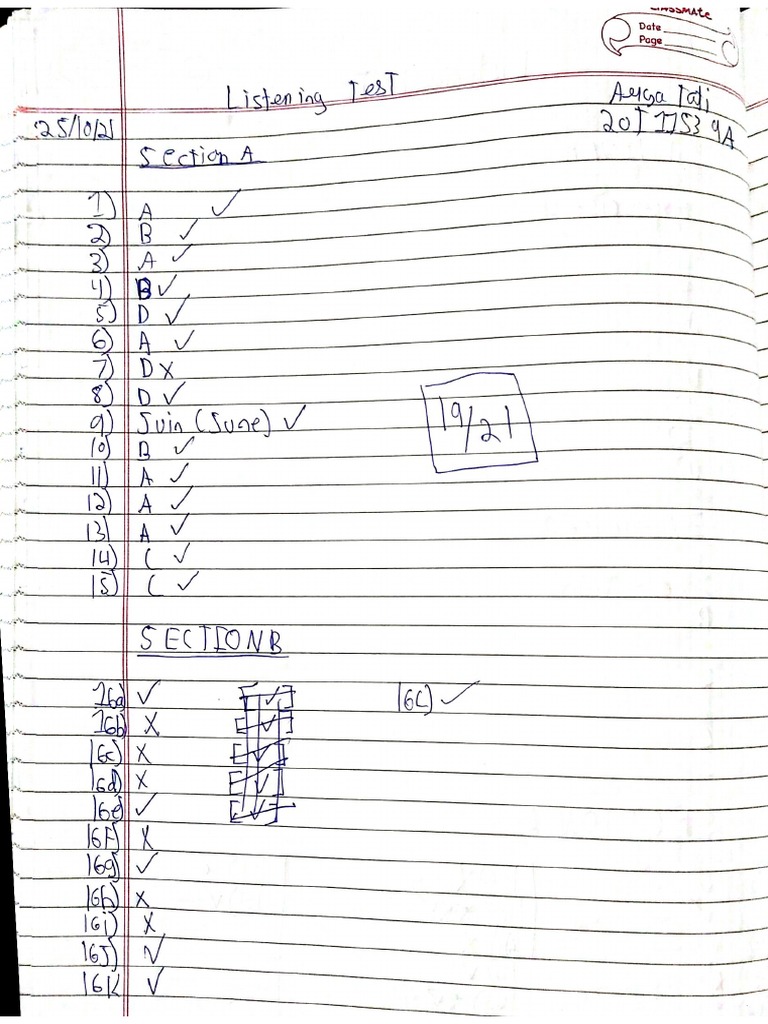 CLASSMATE
Date
Page
Listening Test
25/10/21
Section A
1) A ✓
2) B ✓
3) A ✓
4) B ✓
5) D ✓
6) A ✓
7) D X
8) D ✓
9) Juin (June) ✓
19/21
10) B ✓
11) A ✓
12) A ✓
13) A ✓
14) C ✓
15) C ✓
SECTION B
16a) ✓ 16C) ✓
16b) X
16c) X
16d) X
16e) ✓
16F) X
16g) ✓
16h) X
16i) X
16J) ✓
16K ✓